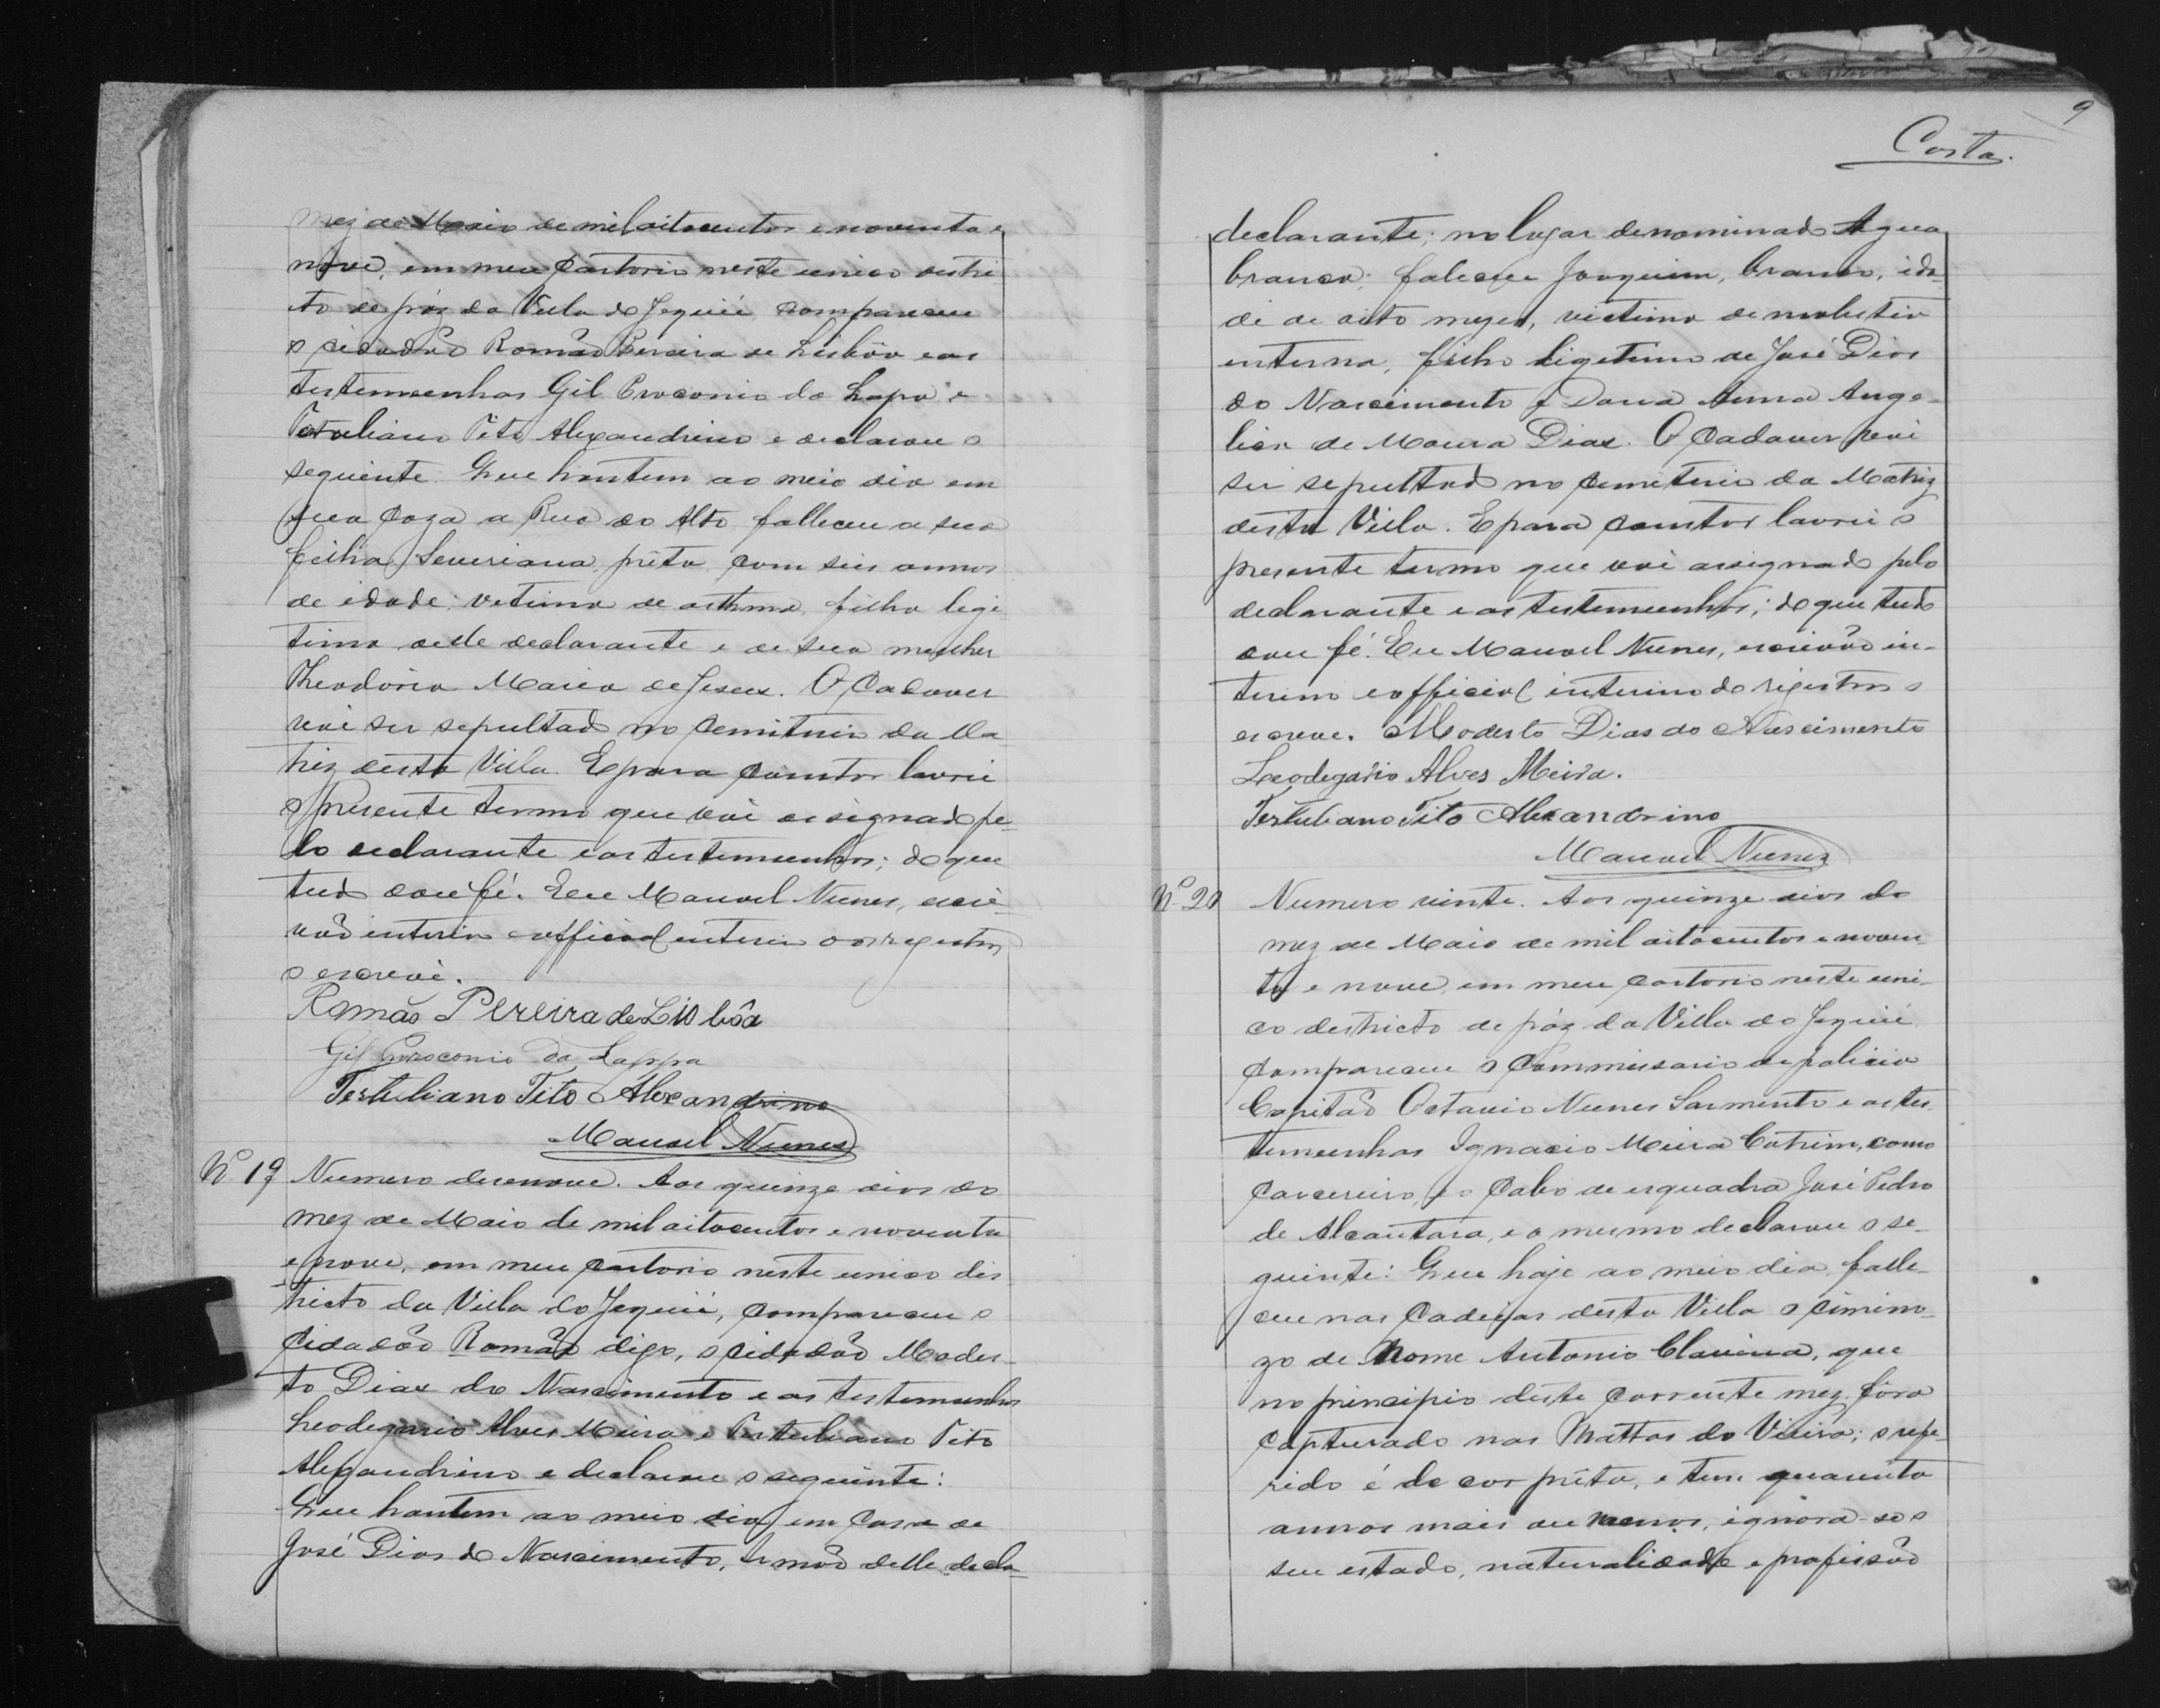 mez de Maio de mil oitocentos e noventa e
nove, em meu Cartorio neste unico distri
cto de páz da Villa de Jequié compareceu
o cidadão Romão Pereira de Lisbôa e as
testemunhas Gil Proconio da Lapa e
Tertuliano Tito Alexandrino e declarou o
seguinte: Que hontem ao meio dia em
sua Caza a Rua do Alto falleceu a sua
filha Severiana, prêta com seis annos
de idade; vetima de asthma, filha legi
tima delle declarante e de sua mulher
Theodoria Maria de Jesus. O Cadaver
vai ser sepultado no Cemiterio da Ma
triz desta Villa. E para Constar lavrei
o presente termo que vai assignado pe-
lo declarante e as testemunhas; do que
tudo dou fé. Eu Manoel Nunes, escri-
vão interin e official interin dos registros
o escrevi.
Romão Pereira de Lisbôa
Gil Proconio da Lappa
Tertuliano Tito Alexandrino
Manoel Nunes
Nº 19 Numero desenove. Aos quinze dias do
mez de Maio de mil oitocentos e noventa
e nove, em meu Cartorio neste unico dis
tricto da Villa do Jequié, compareceu o
Cidadão Romão digo, o Cidadão Modes-
to Dias do Nascimento e as testemunhas
Leodegario Alves Meira e Tertuliano Tito
Alexandrino e declarou o seguinte:
Que hontem ao meio dia, em Casa de
José Dias do Nascimento, Irmão delle decla-
9
Costa.
declarante; no lugar denominado Agua
branca; faleceu Joaquim, branco, ida-
de de oito mezes, victima de molestia
interna, filho ligetimo de José Dias
do Nascimento e Dona Anna Ange-
lica de Moura Dias. O Cadaver vai
ser sepultado no Cemiterio da Matriz
desta Villa. E para Constar lavrei o
presente termo que vai assignado pelo
declarante e as testemunhas; do que tudo
dou fé. Eu Manoel Nunes, escrivão in-
terino e official interino do registros o
escrevi. Modesto Dias do Nascimento
Leodegario Alves Meira.
Tertuliano Tito Alexandrino
Manoel Nunes
Nº 20 Numero vinte. Aos quinze dias do
mez de Maio de mil oitocentos e noven-
ta e nove, em meu Cartorio neste uni-
co destricto de páz da Villa do Jequié
Compareceu o Commissario de policia
Capitão Octavio Nunes Sarmento e as tes
temunhas Ignacio Meira Cotrim, como
Carcereiro, e o Cabo de esquadra José Pedro
de Alcantara, e o mesmo declarou o se-
guinte: Que hoje ao meio dia, falle-
ceu nas Cadeias desta Villa o cimino-
zo de Nome Antonio Clavina, que
no principio deste Corrente mez, fôra
Capturado nas Mattas do Vieira; o refe-
rido é de cor prêta, e tem quarenta
annos mais ou menos, ignora-se o
seu estado, naturalidade e profissão